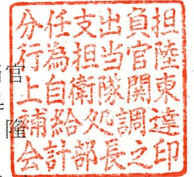 分任支出負担
行為担当官陸
上自衛隊関東
補給処調達
会計部長之印
官
隆